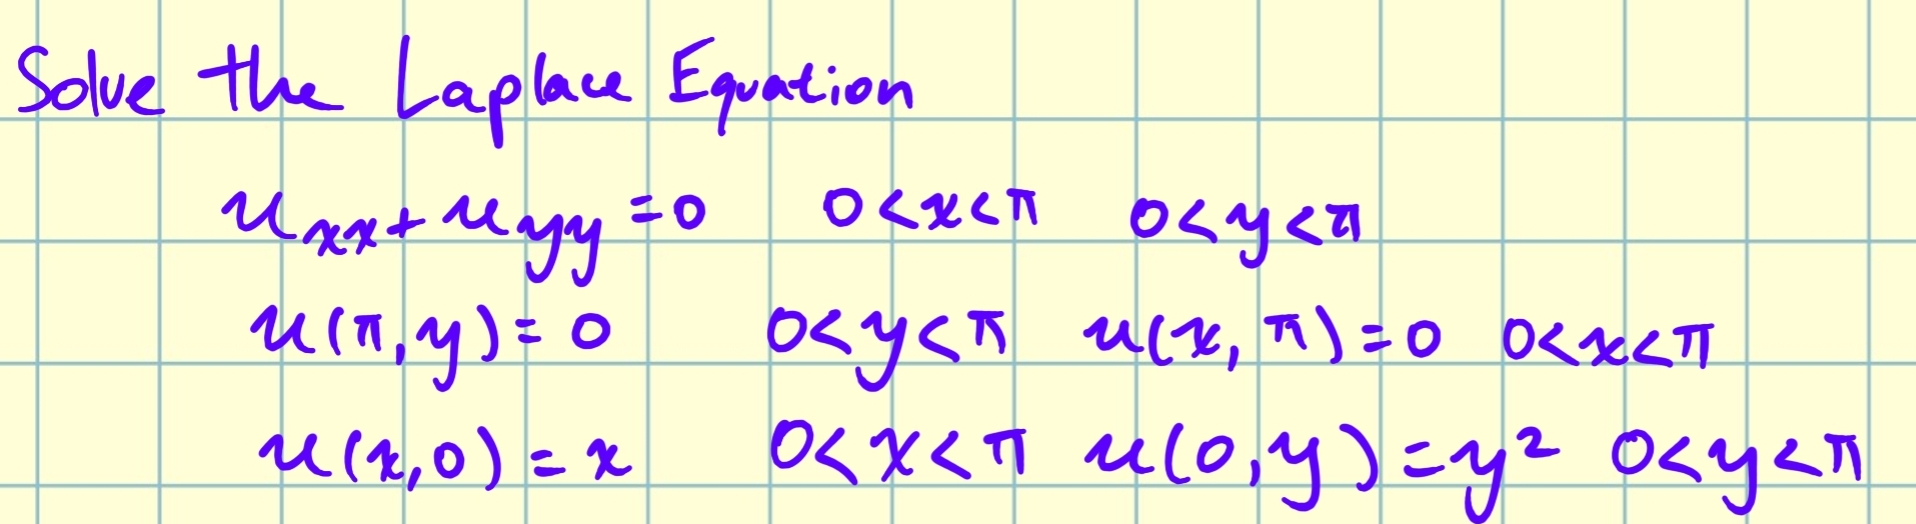 Solve the Laplace Equation
u_xx + u_yy = 0 0<x<π 0<y<π
u(π,y) = 0 0<y<π u(x,π) = 0 0<x<π
u(x,0) = x 0<x<π u(0,y) = y² 0<y<π